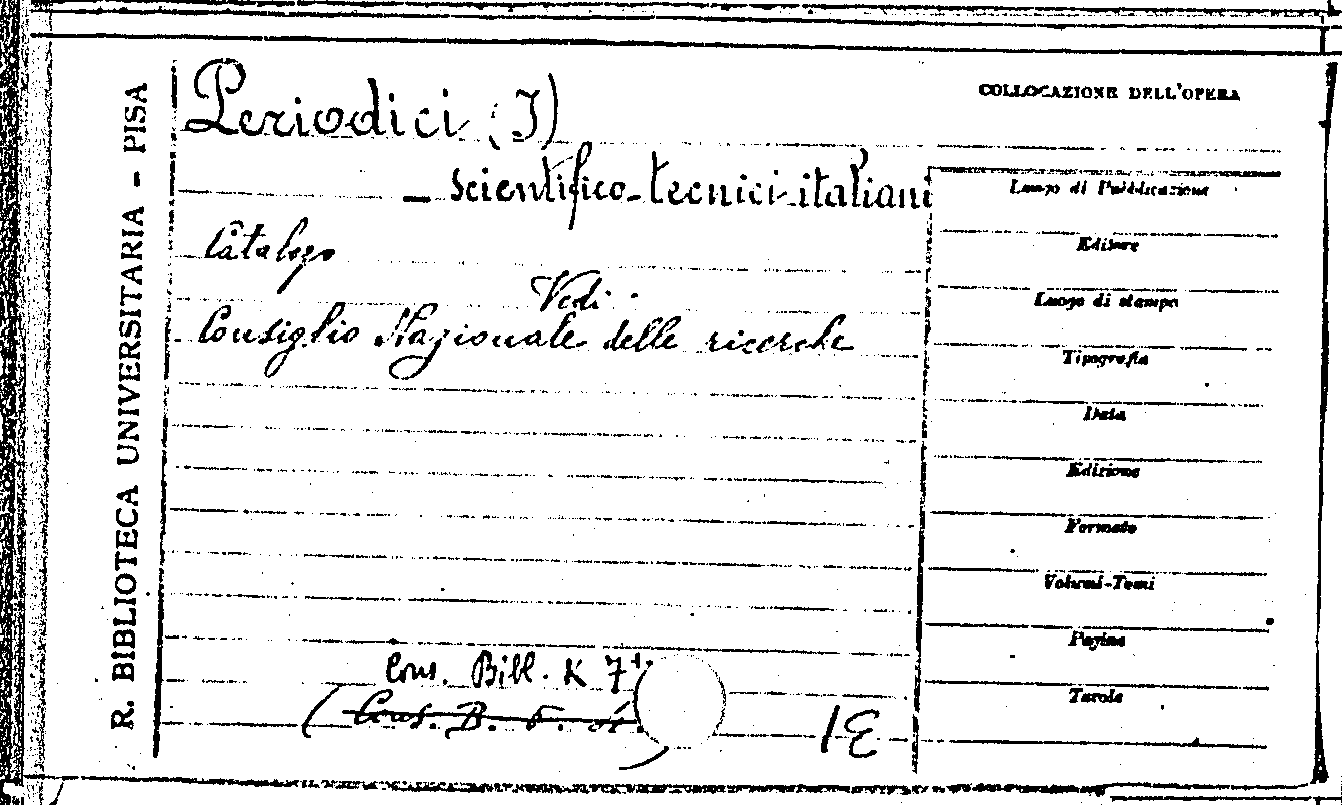 R. BIBLIOTECA UNIVERSITARIA - PISA
Periodici (I)
- scientifico-tecnici-italiani
Catalogo
Vedi
Consiglio Nazionale delle ricerche
Cons. Bibl. K 7
(Cons. B.
COLLOCAZIONE DELL'OPERA
Luogo di Pubblicazione
Editore
Luogo di stampa
Tipografia
Data
Edizione
Formato
Volumi-Tomi
Pagine
Tavole